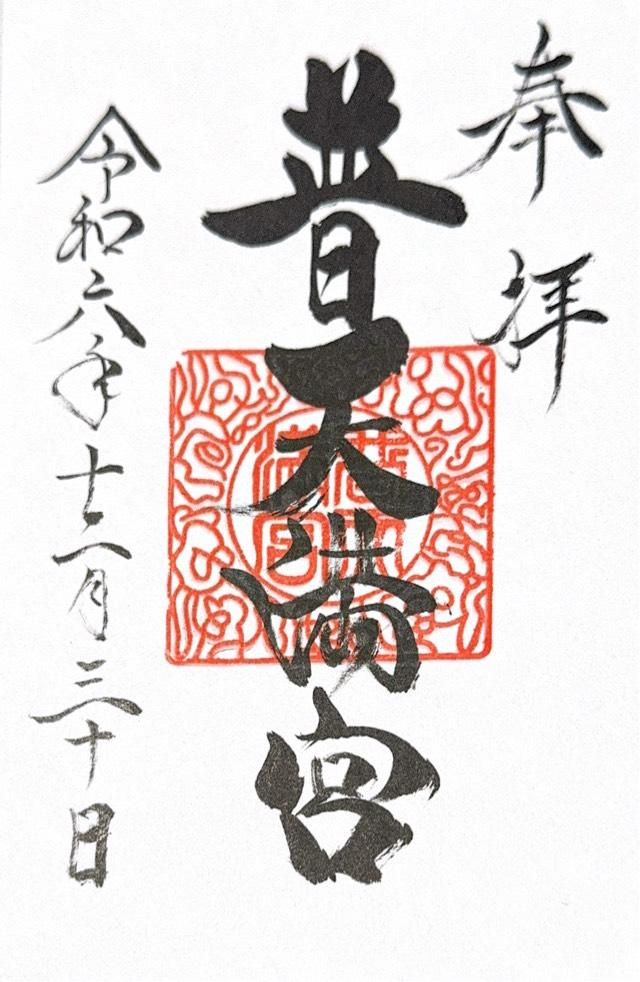 奉拝
普天満宮
令和六年十二月三十日